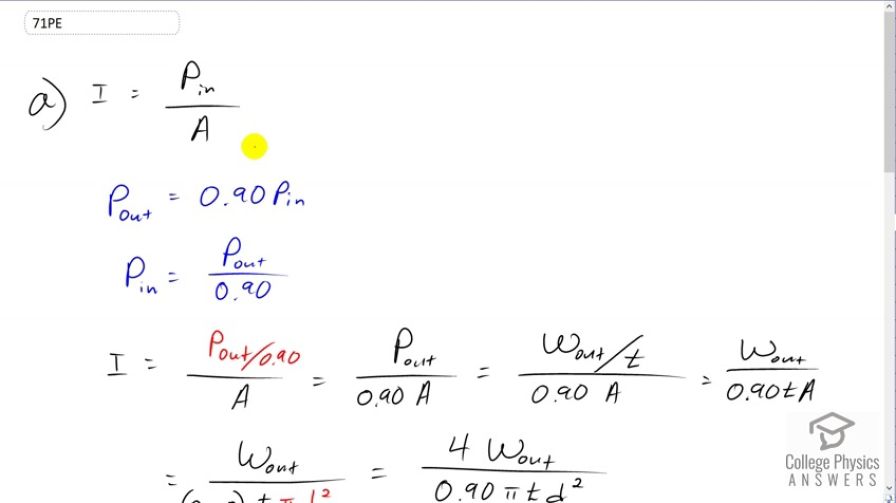 71PE
a) I = P_in / A
P_out = 0.90 P_in
P_in = P_out / 0.90
I = (P_out/0.90) / A = P_out / (0.90 A) = (W_out/t) / (0.90 A) = W_out / (0.90 t A)
= W_out / ((0.90) t π d²) = 4 W_out / (0.90 π t d²)
College Physics
ANSWERS